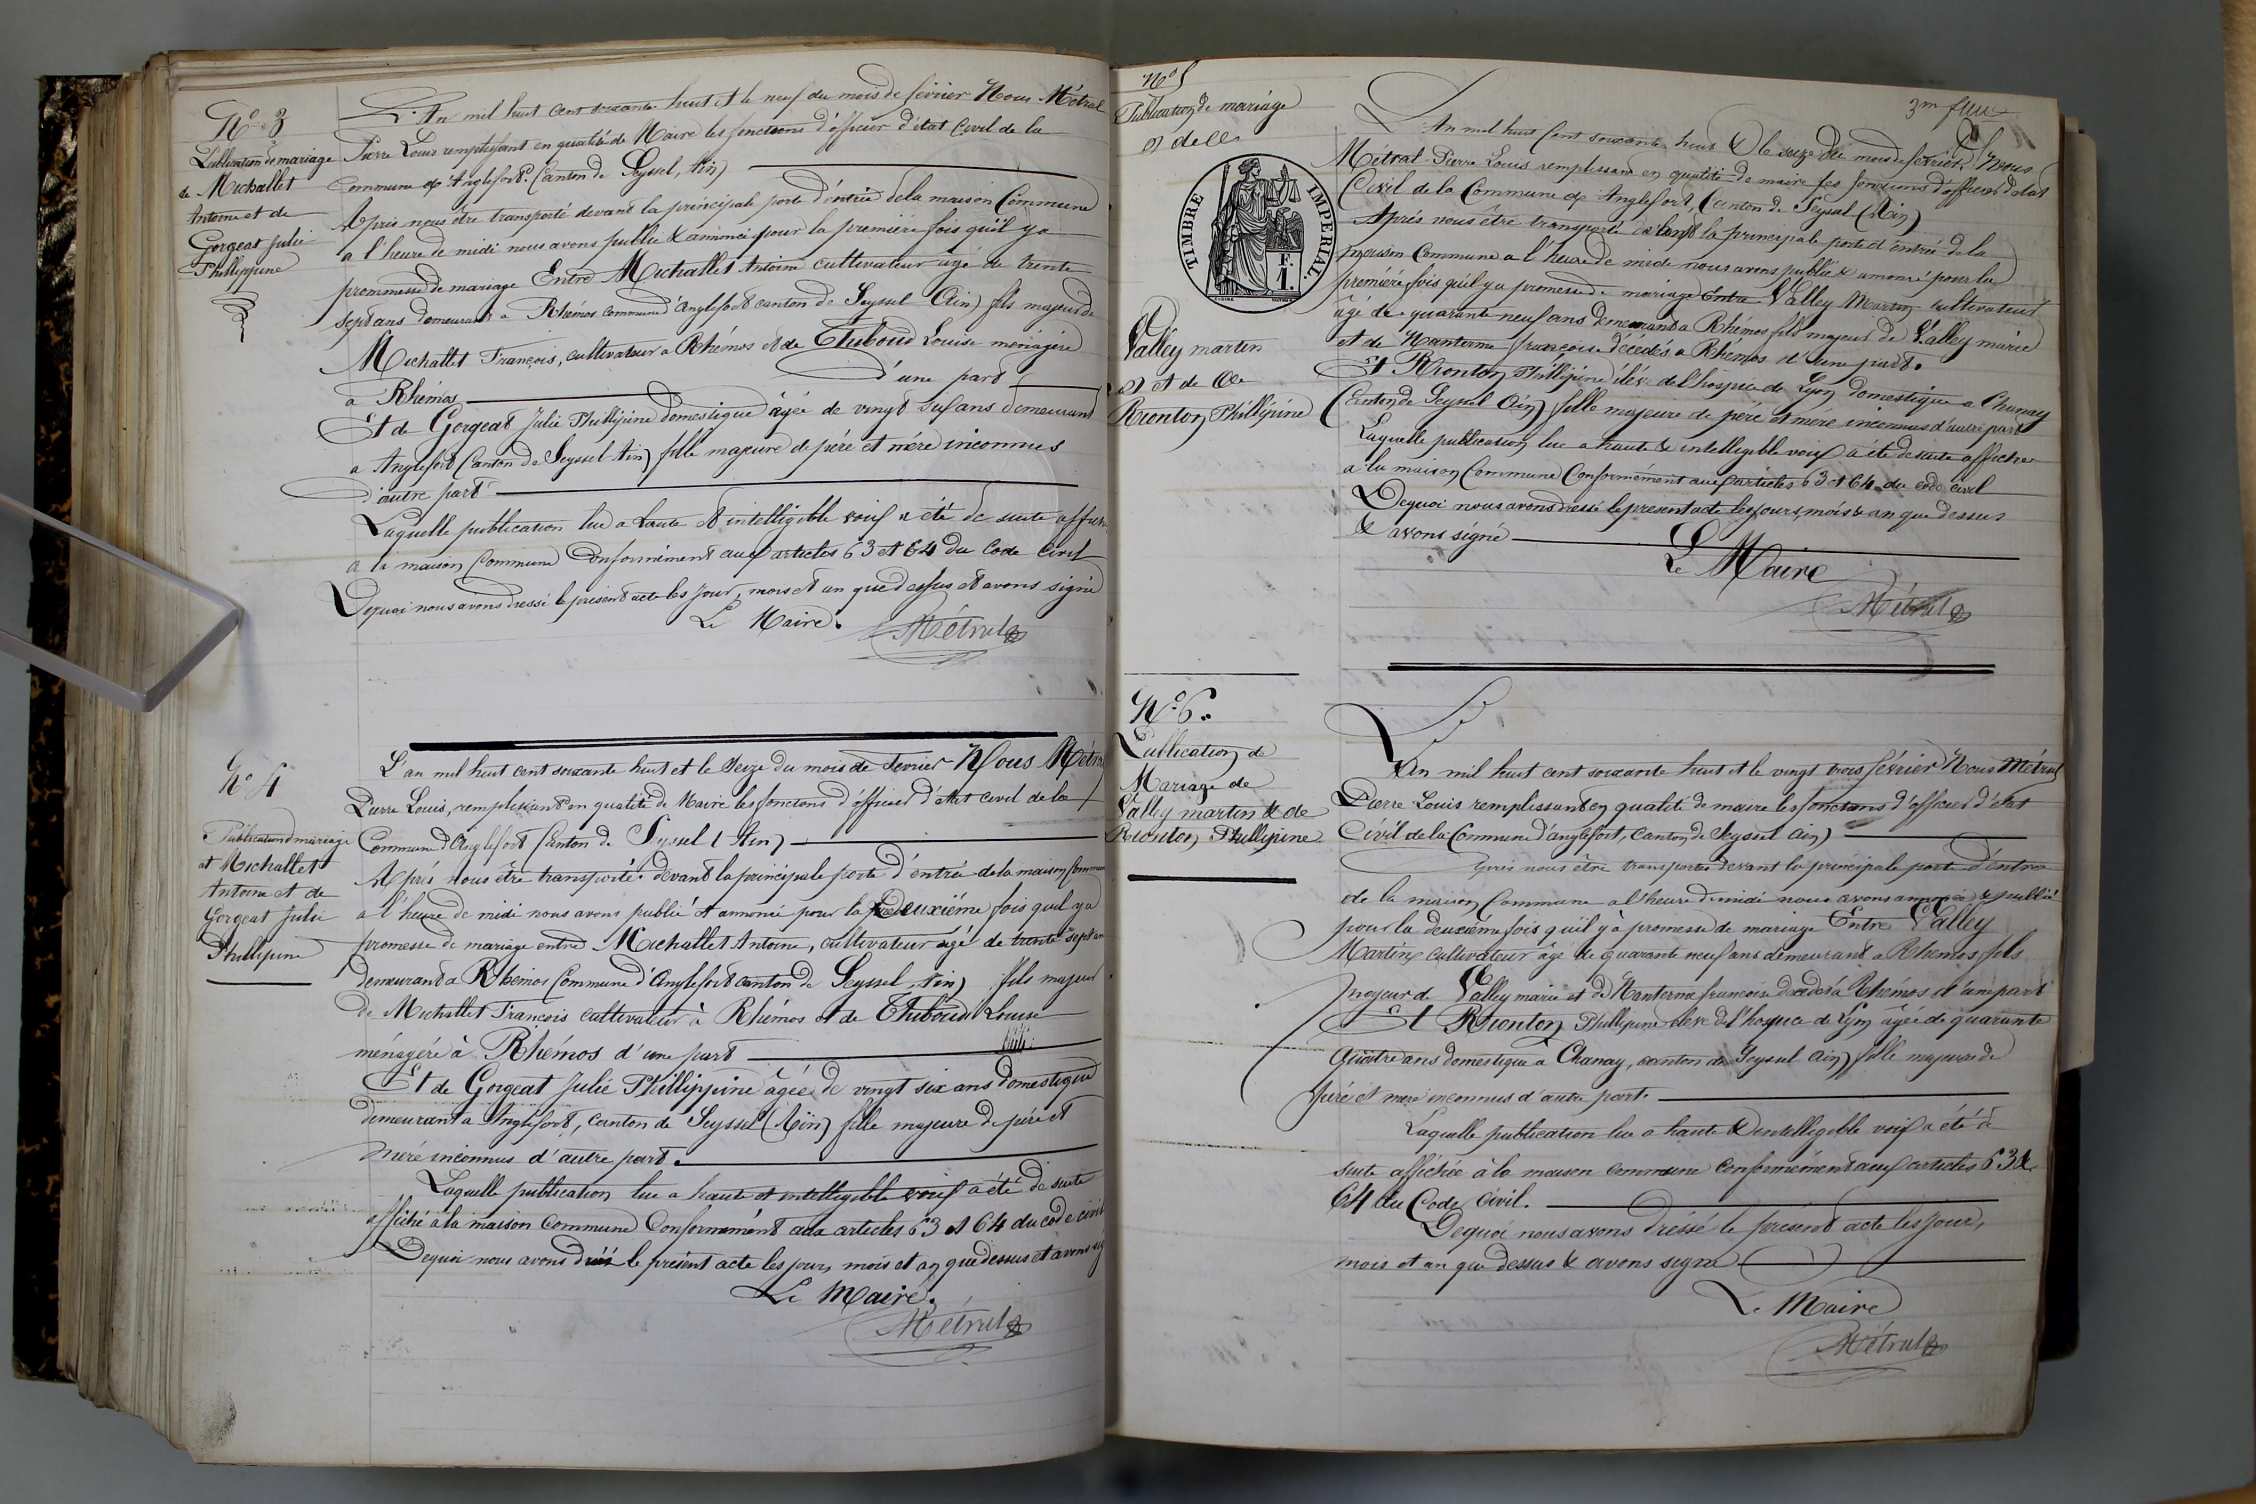 N° 3
Publication de mariage
de Michallet
Antoine et de
Gorgeat Julie
Phillippine
L'An mil huit cent soixante huit et le neuf du mois de février Nous Métral
Pierre Louis remplissant en qualité de Maire les fonctions d'officier d'état Civil de la
Commune d'Anglefort (Canton de Seyssel, Ain)
Après nous être transporté devant la principale porte d'entrée de la maison Commune
a l'heure de midi nous avons publié & annoncé pour la première fois qu'il y a
prommesse de mariage Entre Michallet Antoine cultivateur agé de trente
sept ans demeurant a Rhémos commune d'Anglefort canton de Seyssel (Ain) fils majeur de
Michallet François, cultivateur a Rhémos et de Thiboud Louise ménagère
à Rhémos d'une part
Et de Gorgeat Julie Phillipine domestique âgée de vingt six ans demeurant
a Anglefort (Canton de Seyssel Ain) fille majeure de père et mère inconnus
d'autre part
Laquelle publication lue a haute et intelligible voix a été de suite affichée
a la maison Commune Conformément aux articles 63 et 64 du Code Civil
Dequoi nous avons dressé le présent acte les jour, mois et an que dessus et avons signé
Le Maire.
Métral
N° 4
Publication d mariage
et Michallet
Antoine et de
Gorgeat Julie
Phillipine
L'an mil huit cent soixante huit et le Seize du mois de fevrier Nous Métral
Pierre Louis, remplissant en qualité de Maire les fonctions d'officier d'état civil de la
Commune d'Anglefort (Canton de Seyssel (Ain)
Après nous être transporté devant la principale porte d'entrée de la maison Commune
a l'heure de midi nous avons publié et annoncé pour la deuxième fois quil y a
promesse de mariage entre Michallet Antoine, cultivateur agé de trente sept ans
demeurant a Rhémos Commune d'Anglefort canton de Seyssel, Ain) fils majeur
de Michallet François cultivateur à Rhémos et de Thiboud Louise
ménagère à Rhémos d'une part
Et de Gorgeat Julie Phillippine âgée de vingt six ans domestique
demeurant a Anglefort, canton de Seyssel (Ain) fille majeure de père et
mère inconnus d'autre part.
Laquelle publication lue a haute et intelligible voix a été de suite
affiché à la maison Commune Conformément aux articles 63 et 64 du code civil
Dequoi nous avons dressé le présent acte les jour, mois et an que dessus et avons
Le Maire.
Métral
N° 5
Publication de mariage
TIMBRE IMPERIAL.
F.
1.
Valley martin
et de
Rionton Phillipine
3me
L'An mil huit Cent soixante huit & le seize du mois de février Nous
Métral Pierre Louis remplissant en qualité de maire les fonctions d'officier d'état
Civil de la Commune d'Anglefort, (canton de Seyssel (Ain)
Après nous être transporté devant la principale porte d'entrée de la
maison Commune a l'heure de midi nous avons publié & annoncé pour la
première fois qu'il y a promesse de mariage Entre Valley Martin cultivateur
âgé de quarante neuf ans demeurant a Rhémos fils majeur de Valley marie
et de Nanterme françoise décédés a Rhémos d'une part.
Et Rionton Phillipine élève de l'hospice de Lyon domestique a Chanay
(Canton de Seyssel Ain) fille majeure de père et mère inconnus d'autre part
Laquelle publication lue a haute & intelligible voix a été de suite affichée
a la maison Commune Conformément aux articles 63 et 64 du code civil
Dequoi nous avons dressé le present acte les jours, mois & an que dessus
& avons signé
Le Maire
Métral
N° 6.
Publication de
Mariage de
Valley martin & de
Rionton Phillipine
L'An mil huit cent soixante huit et le vingt trois février Nous Métral
Pierre Louis remplissant en qualité de maire les fonctions d'officier d'état
Civil de la Commune d'anglefort, canton de Seyssel Ain)
Après nous être transporté devant la principale porte d'entrée
de la maison Commune a l'heure de midi nous avons annoncé & publié
pour la deuxième fois qu'il y a promesse de mariage Entre Valley
Martin cultivateur âgé de quarante neuf ans demeurant a Rhémos fils
majeur de Valley marie et de Nanterme françoise décédés à Rhémos d'une part
Et Rionton Phillipine élève de l'hospice de Lyon âgée de quarante
quatre ans domestique à Chanay, canton de Seyssel Ain) fille majeure de
père et mère inconnus d'autre part.
Laquelle publication lue a haute & intelligible voix a été de
suite affichée à la maison commune conformément aux articles 63 &
64 du Code Civil.
Dequoi nous avons dréssé le présent acte les jour,
mois et an que dessus & avons signé
Le Maire
Métral